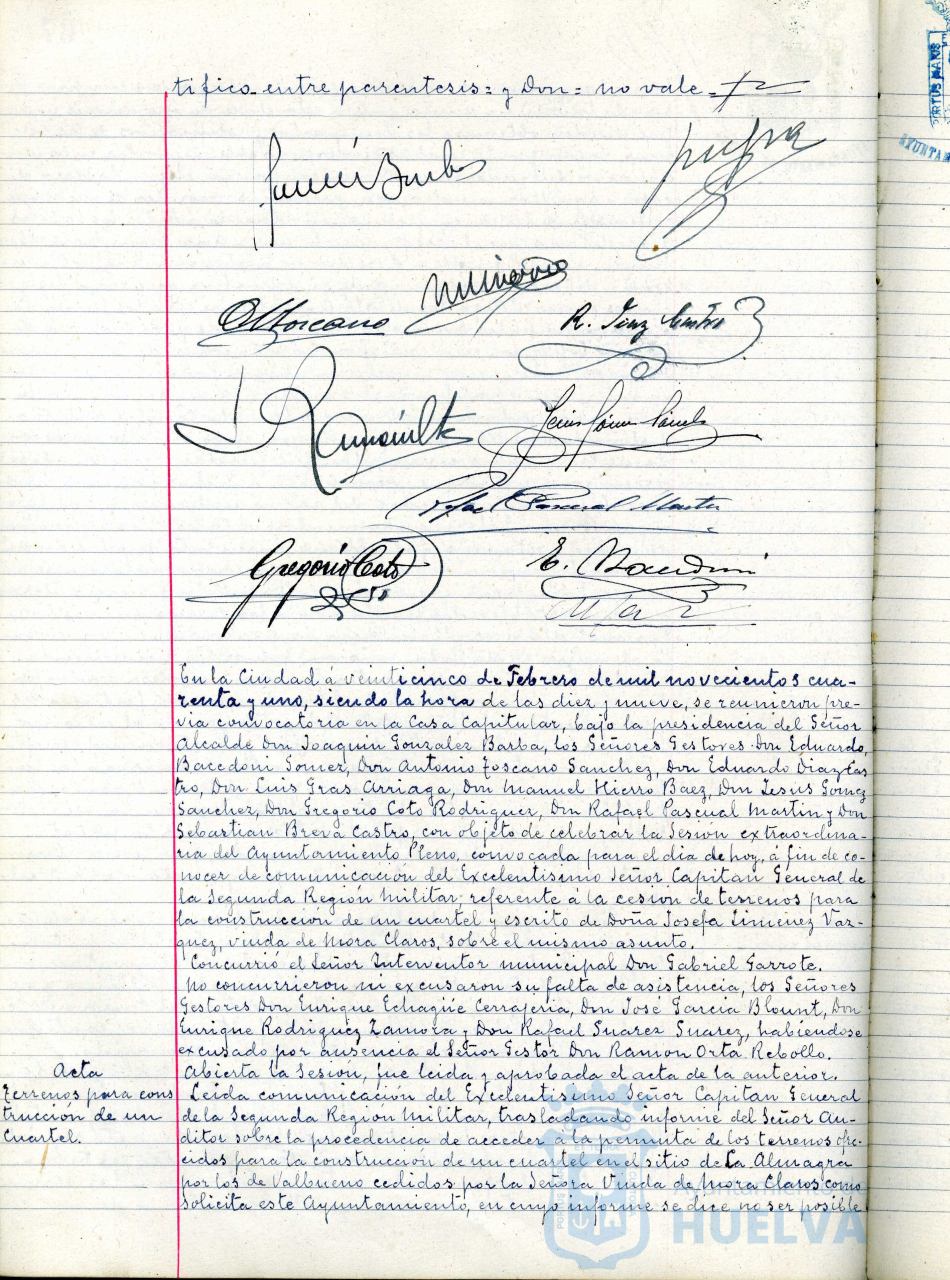 tifico entre parentesis = y Don = no vale =
Gregorio Coto
En la Ciudad á veinticinco de Febrero de mil novecientos cua-
renta y uno, siendo la hora de las diez y nueve, se reunieron pre-
via convocatoria en la Casa Capitular, bajo la presidencia del Señor
Alcalde Don Joaquin Gonzalez Barba, los Señores Gestores Don Eduardo
Bacedoni Gomez, Don Antonio Toscano Sanchez, Don Eduardo Diaz Cas
tro, Don Luis Gras Arriaga, Don Manuel Hierro Baez, Don Jesus Gomez
Sanchez, Don Gregorio Coto Rodriguez, Don Rafael Pascual Martin y Don
Sebastian Breva Castro, con objeto de celebrar la Sesion extraordina-
ria del Ayuntamiento Pleno, convocada para el dia de hoy, á fin de co-
nocer de comunicación del Excelentisimo Señor Capitan General de
la Segunda Región Militar referente á la cesion de terrenos para
la construcción de un cuartel y escrito de Doña Josefa Jimenez Vaz-
quez, viuda de Mora Claros, sobre el mismo asunto.
Concurrió el Señor Interventor municipal Don Gabriel Garrote.
No concurrieron ni excusaron su falta de asistencia, los Señores
Gestores Don Enrique Echagüe Cerrajeria, Don José Garcia Blount, Don
Enrique Rodriguez Zamora y Don Rafael Suarez Suarez, habiéndose
excusado por ausencia el Señor Gestor Don Ramon Orta Rebollo.
Abierta la Sesion, fue leida y aprobada el acta de la anterior.
Acta
Terrenos para cons
trucción de un
Cuartel.
Leida comunicación del Excelentisimo Señor Capitan General
de la Segunda Región Militar, trasladando informe del Señor Au-
ditor sobre la procedencia de acceder á la permuta de los terrenos ofre
cidos para la construcción de un cuartel en el sitio de La Almagra
por los de Valbueno cedidos por la Señora Viuda de Mora Claros como
solicita este Ayuntamiento, en cuyo informe se dice no ser posible
Ayuntamiento de
HUELVA